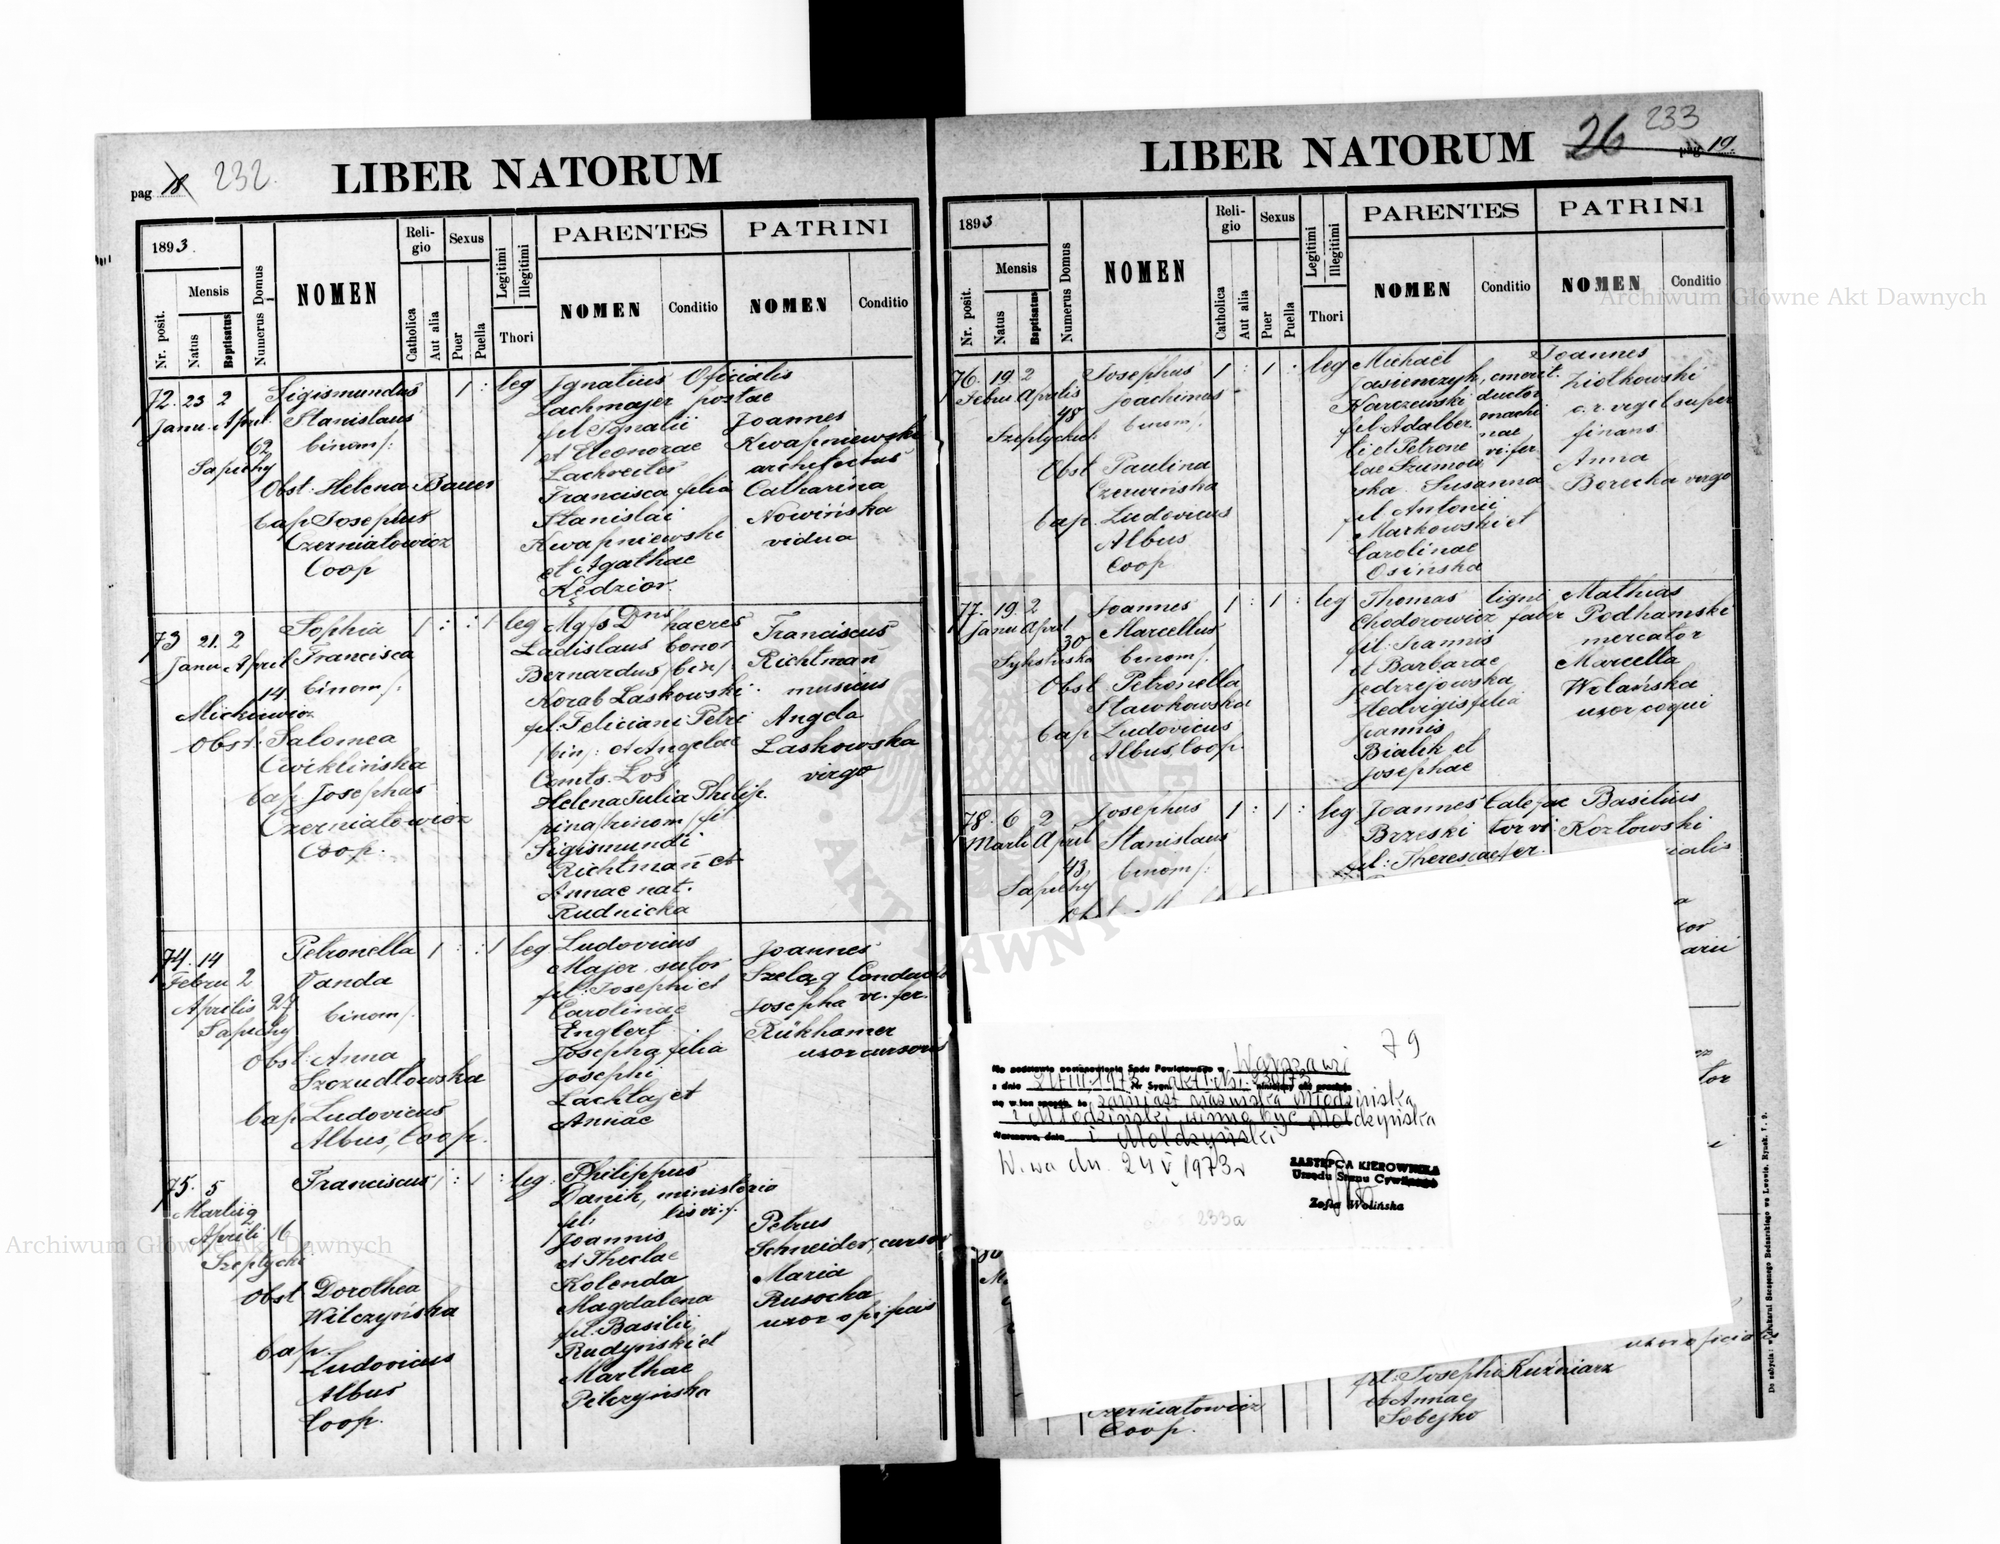 pag 18 232.
LIBER NATORUM
1893.
Nr. posit.
Mensis
Natus
Baptisatus
Numerus Domus
NOMEN
Religio
Catholica
Aut alia
Sexus
Puer
Puella
Legitimi
Illegitimi
Thori
PARENTES
NOMEN
Conditio
PATRINI
NOMEN
Conditio
72. 23 2
Janu. April.
62
Sapiehy
Sigismundus
Stanislaus
binom/:
Obst: Helena Bauer
bap Josephus
Czerniatowicz
Coop
1 :
leg
Ignatius Oficialis
Lachmajer postae
fil Ignatii
et Eleonorae
Lachreiter
Francisca filia
Stanislai
Kwapniewski
et Agathae
Kędzior.
Joannes
Kwapniewski
architectus
Catharina
Nowińska
vidua
73 21. 2
Janu. April
14
Mickiewicz
Sophia
Francisca
binom/:
Obst: Salomea
Cwiklińska
bap Josephus
Czerniatowicz
Coop.
1 : : 1
leg
Mgfs Dns haeres
Ladislaus bonor
Bernardus /bin/:
Korab Laskowski
fil. Feliciani Petri
/bin/: et Angelae
Comts. Los
Helena Julia Philip.
pina /trinom/ fil
Sigismundi
Richtmań et
Annae nat.
Rudnicka
Franciscus
Richtmań
musicus
Angela
Laskowska
virgo
74. 14
Febru 2
Aprilis 27
Sapiehy
Petronella
Vanda
binom/:
Obst: Anna
Szczudłowska
bap Ludovicus
Albus, Coop.
1 : : 1
leg
Ludovicus
Majer, sutor
fil: Josephi et
Carolinae
Englert
Josepha filia
Josephi
Lachtaj et
Annae
Joannes
Szeląg Conduct
Josepha vi. fer.
Rükhamer
uxor cursoris
75. 5
Martii 2
Aprili 16
Szeptycki
Franciscus
Obst Dorothea
Wilczyńska
bap.
Ludovicus
Albus
Coop.
1 : 1 :
leg.
Philippus
Danik, ministeria
fil. lis vi. f.
Joannis
et Theclae
Kolenda
Magdalena
fil. Basilii
Rudyński et
Marthae
Pilczyńska
Petrus
Schneider, cursor
Maria
Rusocka
uxor opificis
26 233
pag 19.
LIBER NATORUM
1893
Nr. posit.
Mensis
Natus
Baptisatus
Numerus Domus
NOMEN
Religio
Catholica
Aut alia
Sexus
Puer
Puella
Legitimi
Illegitimi
Thori
PARENTES
NOMEN
Conditio
PATRINI
NOMEN
Conditio
76. 19. 2
Febru. Aprilis
48
Szeptyckich
Josephus
Joachimus
binom/:
Obst Paulina
Czerwińska
bap. Ludovicus
Albus
Coop
1 : 1 :
leg
Michael
Jasienczyk, emerit.
Karczewski ductor
fil Adalber machi
ti et Petrone nae
lae Szumow vi: fer
ska. Susanna
fil Antonii
Markowski et
Carolinae
Osińska
Joannes
Ziołkowski
c. r. vigil super
finans
Anna
Borecka virgo
77. 19. 2
Janu April
30
Sykstuska
Joannes
Marcellus
binom/:
Obst Petronella
Sławkowska
bap Ludovicus
Albus, Coop.
1 : 1 :
leg
Thomas ligni
Chodorowicz faber
fil. Joannis
et Barbarae
Jedrzejowska
Hedvigis filia
Joannis
Bialik et
Josephae
Mathias
Podhamski
mercator
Marcella
Wolańska
uxor coqui
78. 6 2
Marti April
43,
Sapiehy
Josephus
Stanislaus
binom/:
1 : 1 :
leg
Joannes Calefac
Brzeski tor vi
fil: Theresiae fer.
Basilius
Kozłowski
79
Na podstawie postanowienia Sądu Powiatowego w Warszawie
z dnia
zamiast nazwiska Młodzińska
i Młodziński winno być Mołdzyńska
i Mołdzyński
Warszawa, dnia
W-wa dn. 24 V 1973 r
ZASTĘPCA KIEROWNIKA
Urzędu Stanu Cywilnego
Zofia Wolińska
233a
fil: Josephi Kuźniarz
et Annae
Sobejko
Czerniatowicz
Coop.
Archiwum Główne Akt Dawnych
Archiwum Główne Akt Dawnych